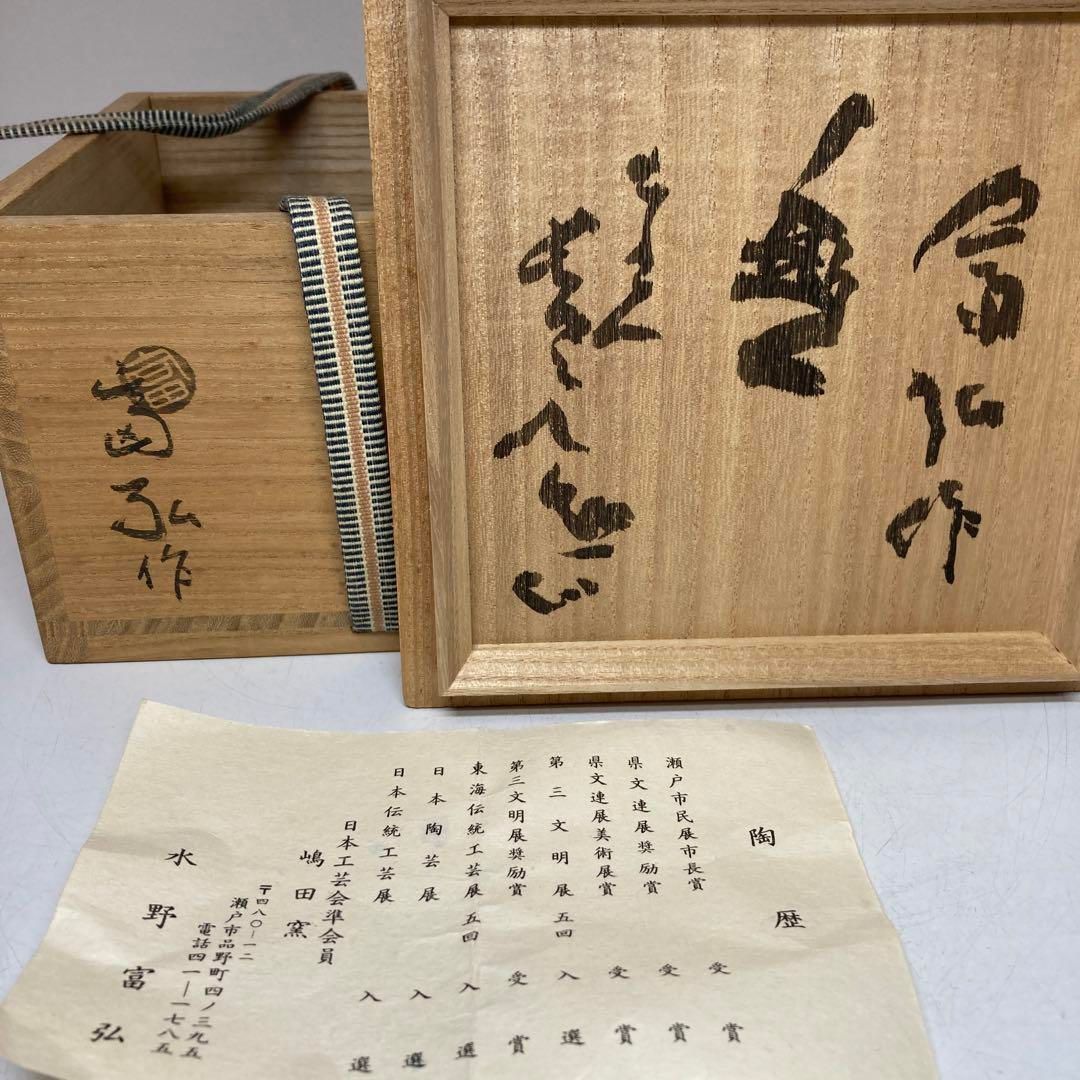 富弘作
富弘作
陶歴
瀬戸市民展市長賞 受賞
県文連展奨励賞 受賞
県文連展美術展賞 受賞
第三文明展五回 入選
第三文明展奨励賞 受賞
東海伝統工芸展五回 入選
日本陶芸展 入選
日本伝統工芸展 入選
日本工芸会準会員
嶋田窯
〒四八〇ー一二
瀬戸市品野町四ノ三九五
電話四一ー一七八五
水野富弘